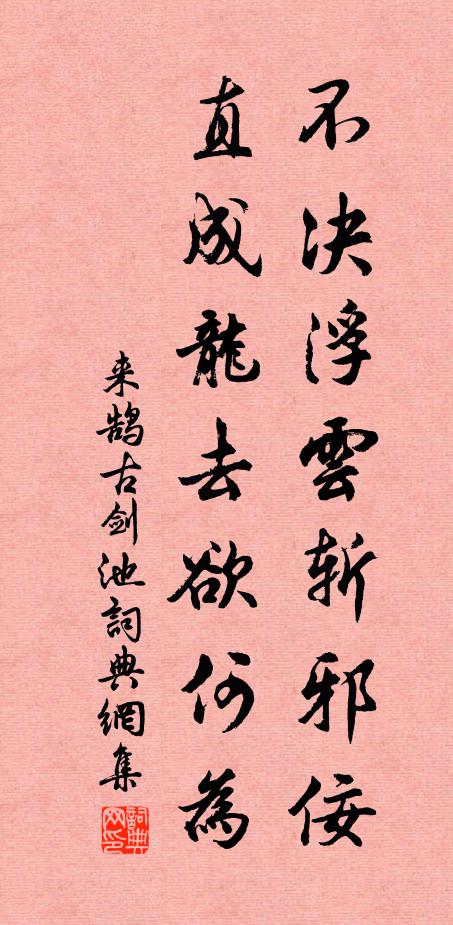 不決浮雲斬邪佞
直成龍去欲何為
来鹄古劍池詞典網集
詞典网印